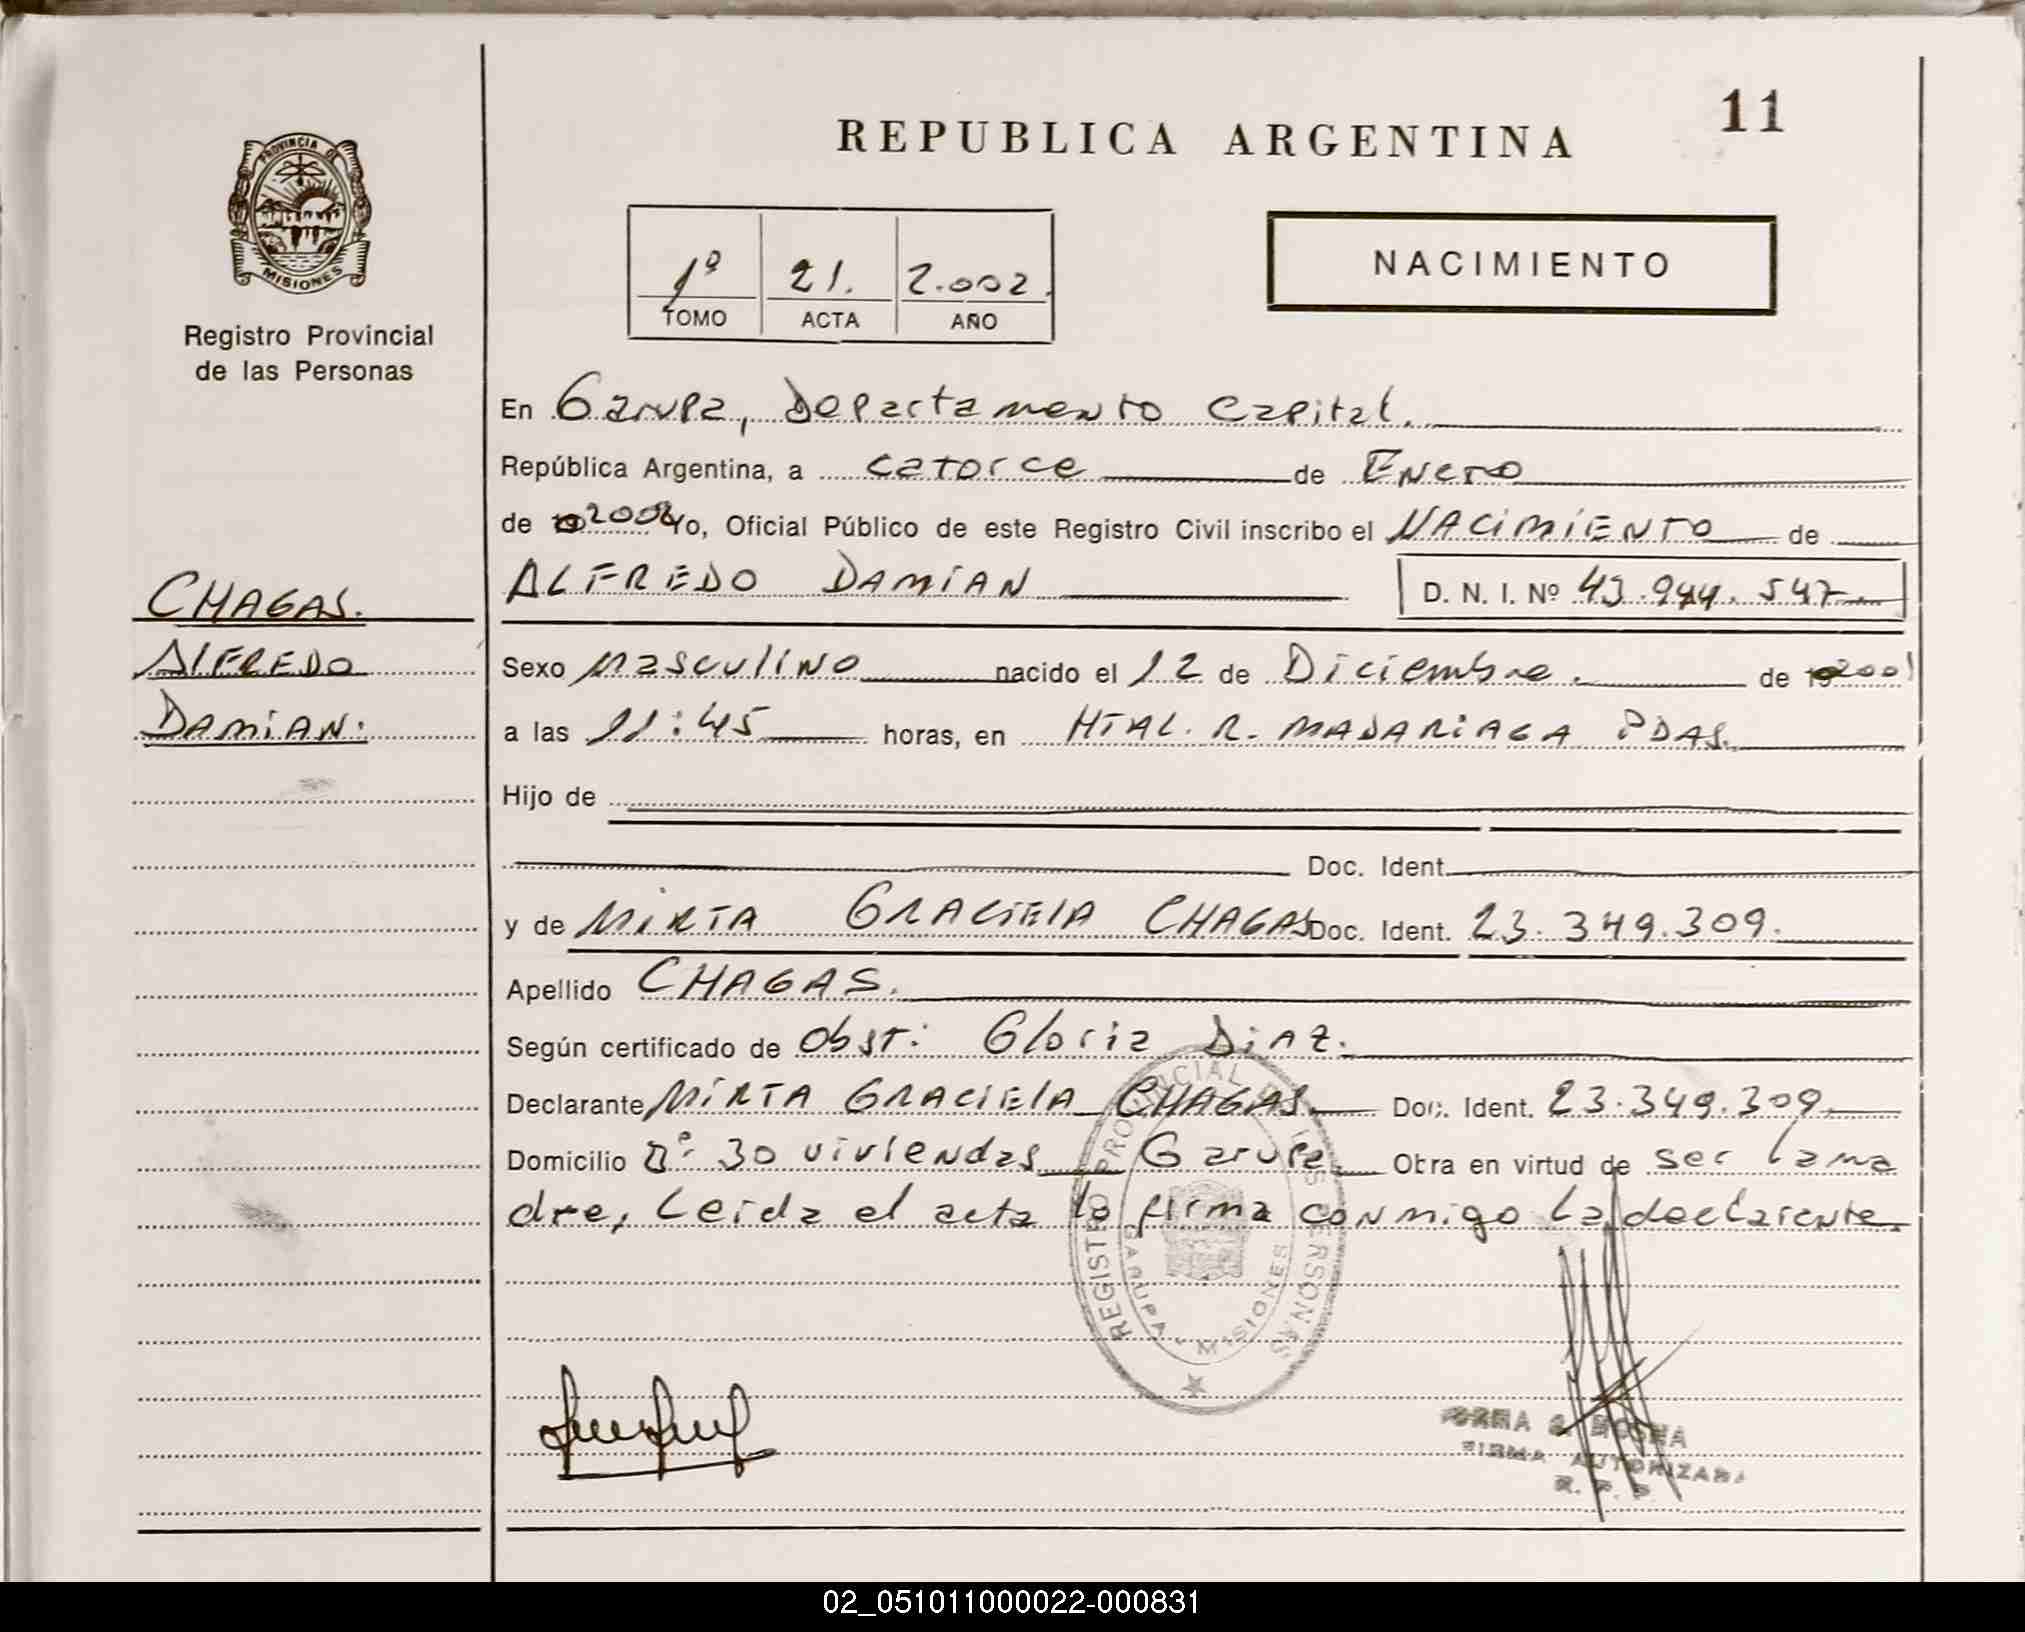 11
REPUBLICA ARGENTINA
PROVINCIA DE
MISIONES
Registro Provincial
de las Personas
1º 21. 2.002.
TOMO ACTA AÑO
NACIMIENTO
En Garupa, Departamento Capital.
República Argentina, a catorce de Enero
de 2002 Yo, Oficial Público de este Registro Civil inscribo el NACIMIENTO de
ALFREDO DAMIAN D. N. I. Nº 43.944.547.
CHAGAS.
ALFREDO
DAMIAN.
Sexo masculino nacido el 12 de Diciembre. de 2001
a las 11:45 horas, en HTAL. R. MADARIAGA PDAS.
Hijo de
Doc. Ident.
y de MIRTA GRACIELA CHAGAS Doc. Ident. 23.349.309.
Apellido CHAGAS.
Según certificado de Obst: Gloria DIAZ.
Declarante MIRTA GRACIELA CHAGAS. Doc. Ident. 23.349.309.
Domicilio Bº 30 viviendas Garupa. Obra en virtud de ser la ma
dre, Leida el acta la firma conmigo la declarente.
REGISTRO PROVINCIAL DE LAS PERSONAS
GARUPA - MISIONES
FIRMA AUTORIZADA
R. P. P.
02_051011000022-000831